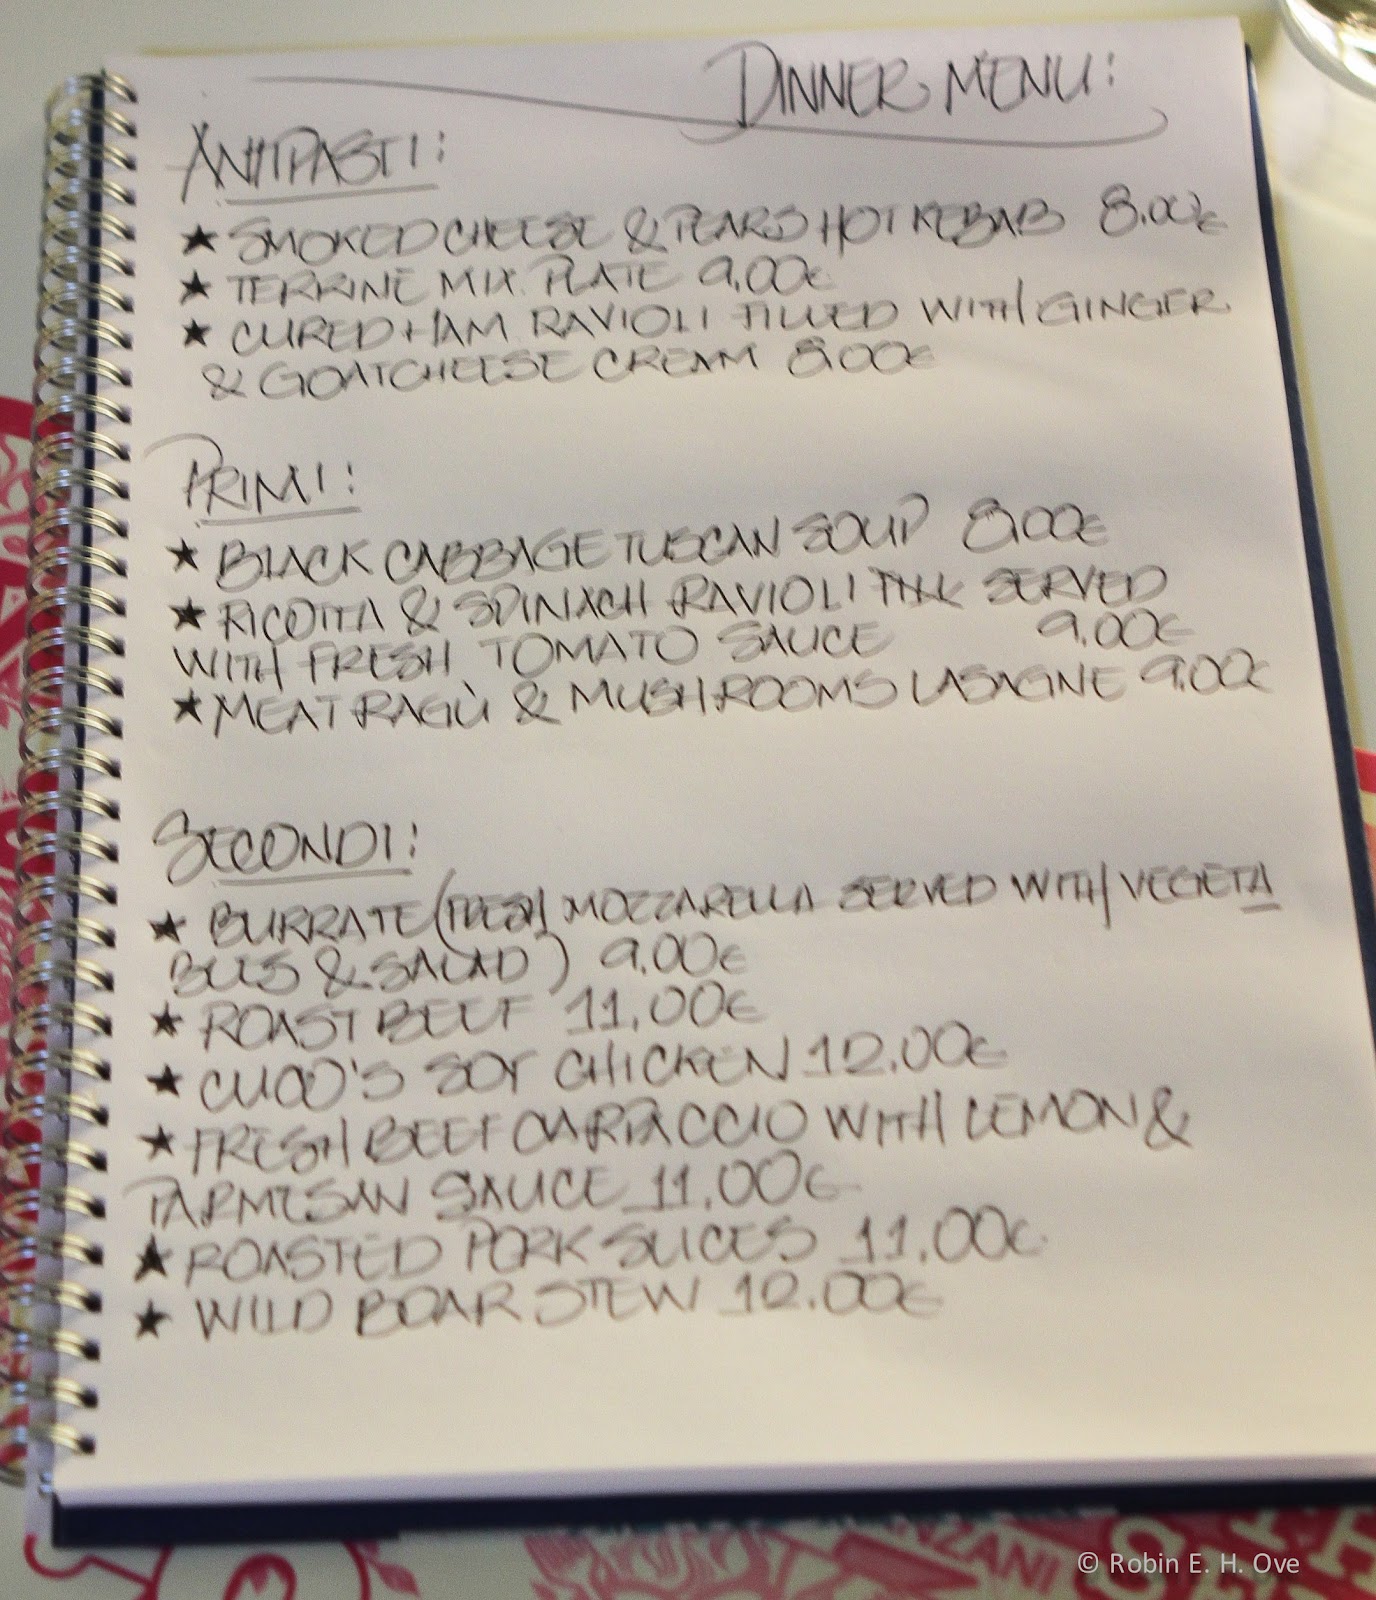 DINNER MENU:
ANTIPASTI:
★ SMOKED CHEESE & PEARS HOT KEBAB 8.00€
★ TERRINE MIX PLATE 9.00€
★ CURED HAM RAVIOLI FILLED WITH GINGER
& GOATCHEESE CREAM 8.00€
PRIMI:
★ BLACK CABBAGE TUSCAN SOUP 8.00€
★ RICOTTA & SPINACH RAVIOLI SERVED
WITH FRESH TOMATO SAUCE 9.00€
★ MEAT RAGÙ & MUSHROOMS LASAGNE 9.00€
SECONDI:
★ BURRATE (FRESH MOZZARELLA SERVED WITH VEGETA
BLES & SALAD) 9.00€
★ ROAST BEEF 11.00€
★ SOY CHICKEN 12.00€
★ FRESH BEEF CARPACCIO WITH LEMON &
PARMESAN SAUCE 11.00€
★ ROASTED PORK SLICES 11.00€
★ WILD BOAR STEW 12.00€
© Robin E. H. Ove